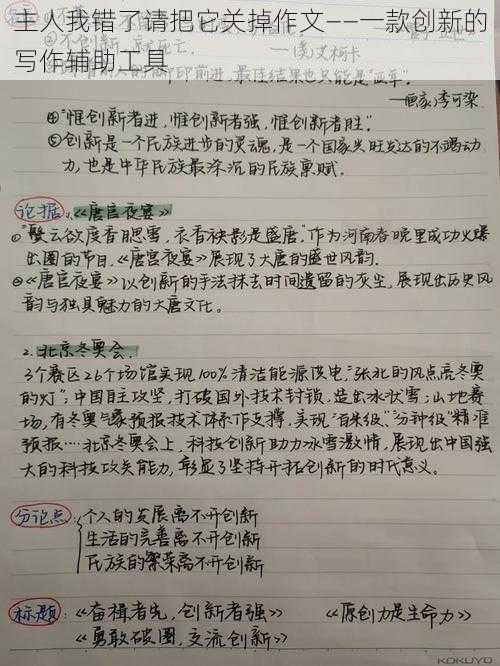 主人我错了请把它关掉作文——一款创新的
写作辅助工具
②不创新,就死亡。 ——(美)艾柯卡
脚印前进,最佳结果也只能是“亚军”。
——画家李可染
④“惟创新者进,惟创新者强,惟创新者胜。”
⑤创新是一个民族进步的灵魂,是一个国家兴旺发达的不竭动
力,也是中华民族最深沉的民族禀赋。
论据:1.《唐宫夜宴》
①“鬓云欲度香腮雪,衣香袂影是盛唐。”作为河南春晚里成功火爆
出圈的节目,《唐宫夜宴》展现了大唐的盛世风韵.
②《唐宫夜宴》以创新的手法抹去时间遗留的灰尘,展现出历史风
韵与独具魅力的大唐文化。
2.北京冬奥会.
3个赛区26个场馆实现100%清洁能源供电,“张北的风点亮冬奥
的灯”;中国自主攻坚,打破国外技术封锁,造出冰状雪;山地赛
场,有冬奥气象预报技术体系作支撑,实现“百米级”、“分钟级”精准
预报……北京冬奥会上,科技创新助力冰雪激情,展现出中国强
大的科技攻关能力,彰显了坚持开拓创新的时代意义。
分论点:个人的发展离不开创新
生活的完善离不开创新
民族的繁荣离不开创新
标题:《奋楫者先,创新者强》 《原创力是生命力》
《勇敢破圈,交流创新》
KOKUYO